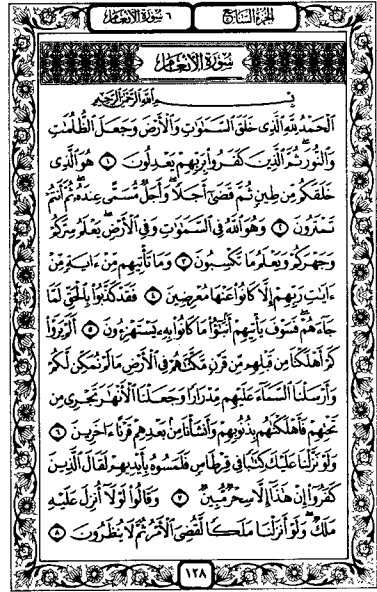 الجزء السابع
٦ سورة الأنعام
سورة الأنعام
بسم الله الرحمن الرحيم
ٱلْحَمْدُ لِلَّهِ ٱلَّذِى خَلَقَ ٱلسَّمَٰوَٰتِ وَٱلْأَرْضَ وَجَعَلَ ٱلظُّلُمَٰتِ
وَٱلنُّورَ ۖ ثُمَّ ٱلَّذِينَ كَفَرُوا۟ بِرَبِّهِمْ يَعْدِلُونَ ١ هُوَ ٱلَّذِى
خَلَقَكُم مِّن طِينٍ ثُمَّ قَضَىٰٓ أَجَلًا ۖ وَأَجَلٌ مُّسَمًّى عِندَهُۥ ۖ ثُمَّ أَنتُمْ
تَمْتَرُونَ ٢ وَهُوَ ٱللَّهُ فِى ٱلسَّمَٰوَٰتِ وَفِى ٱلْأَرْضِ ۖ يَعْلَمُ سِرَّكُمْ
وَجَهْرَكُمْ وَيَعْلَمُ مَا تَكْسِبُونَ ٣ وَمَا تَأْتِيهِم مِّنْ ءَايَةٍ مِّنْ
ءَايَٰتِ رَبِّهِمْ إِلَّا كَانُوا۟ عَنْهَا مُعْرِضِينَ ٤ فَقَدْ كَذَّبُوا۟ بِٱلْحَقِّ لَمَّا
جَآءَهُمْ ۖ فَسَوْفَ يَأْتِيهِمْ أَنۢبَٰٓؤُا۟ مَا كَانُوا۟ بِهِۦ يَسْتَهْزِءُونَ ٥ أَلَمْ يَرَوْا۟
كَمْ أَهْلَكْنَا مِن قَبْلِهِم مِّن قَرْنٍ مَّكَّنَّٰهُمْ فِى ٱلْأَرْضِ مَا لَمْ نُمَكِّن لَّكُمْ
وَأَرْسَلْنَا ٱلسَّمَآءَ عَلَيْهِم مِّدْرَارًا وَجَعَلْنَا ٱلْأَنْهَٰرَ تَجْرِى مِن
تَحْتِهِمْ فَأَهْلَكْنَٰهُم بِذُنُوبِهِمْ وَأَنشَأْنَا مِنۢ بَعْدِهِمْ قَرْنًا ءَاخَرِينَ ٦
وَلَوْ نَزَّلْنَا عَلَيْكَ كِتَٰبًا فِى قِرْطَاسٍ فَلَمَسُوهُ بِأَيْدِيهِمْ لَقَالَ ٱلَّذِينَ
كَفَرُوٓا۟ إِنْ هَٰذَآ إِلَّا سِحْرٌ مُّبِينٌ ٧ وَقَالُوا۟ لَوْلَآ أُنزِلَ عَلَيْهِ
مَلَكٌ ۖ وَلَوْ أَنزَلْنَا مَلَكًا لَّقُضِىَ ٱلْأَمْرُ ثُمَّ لَا يُنظَرُونَ ٨
١٢٨